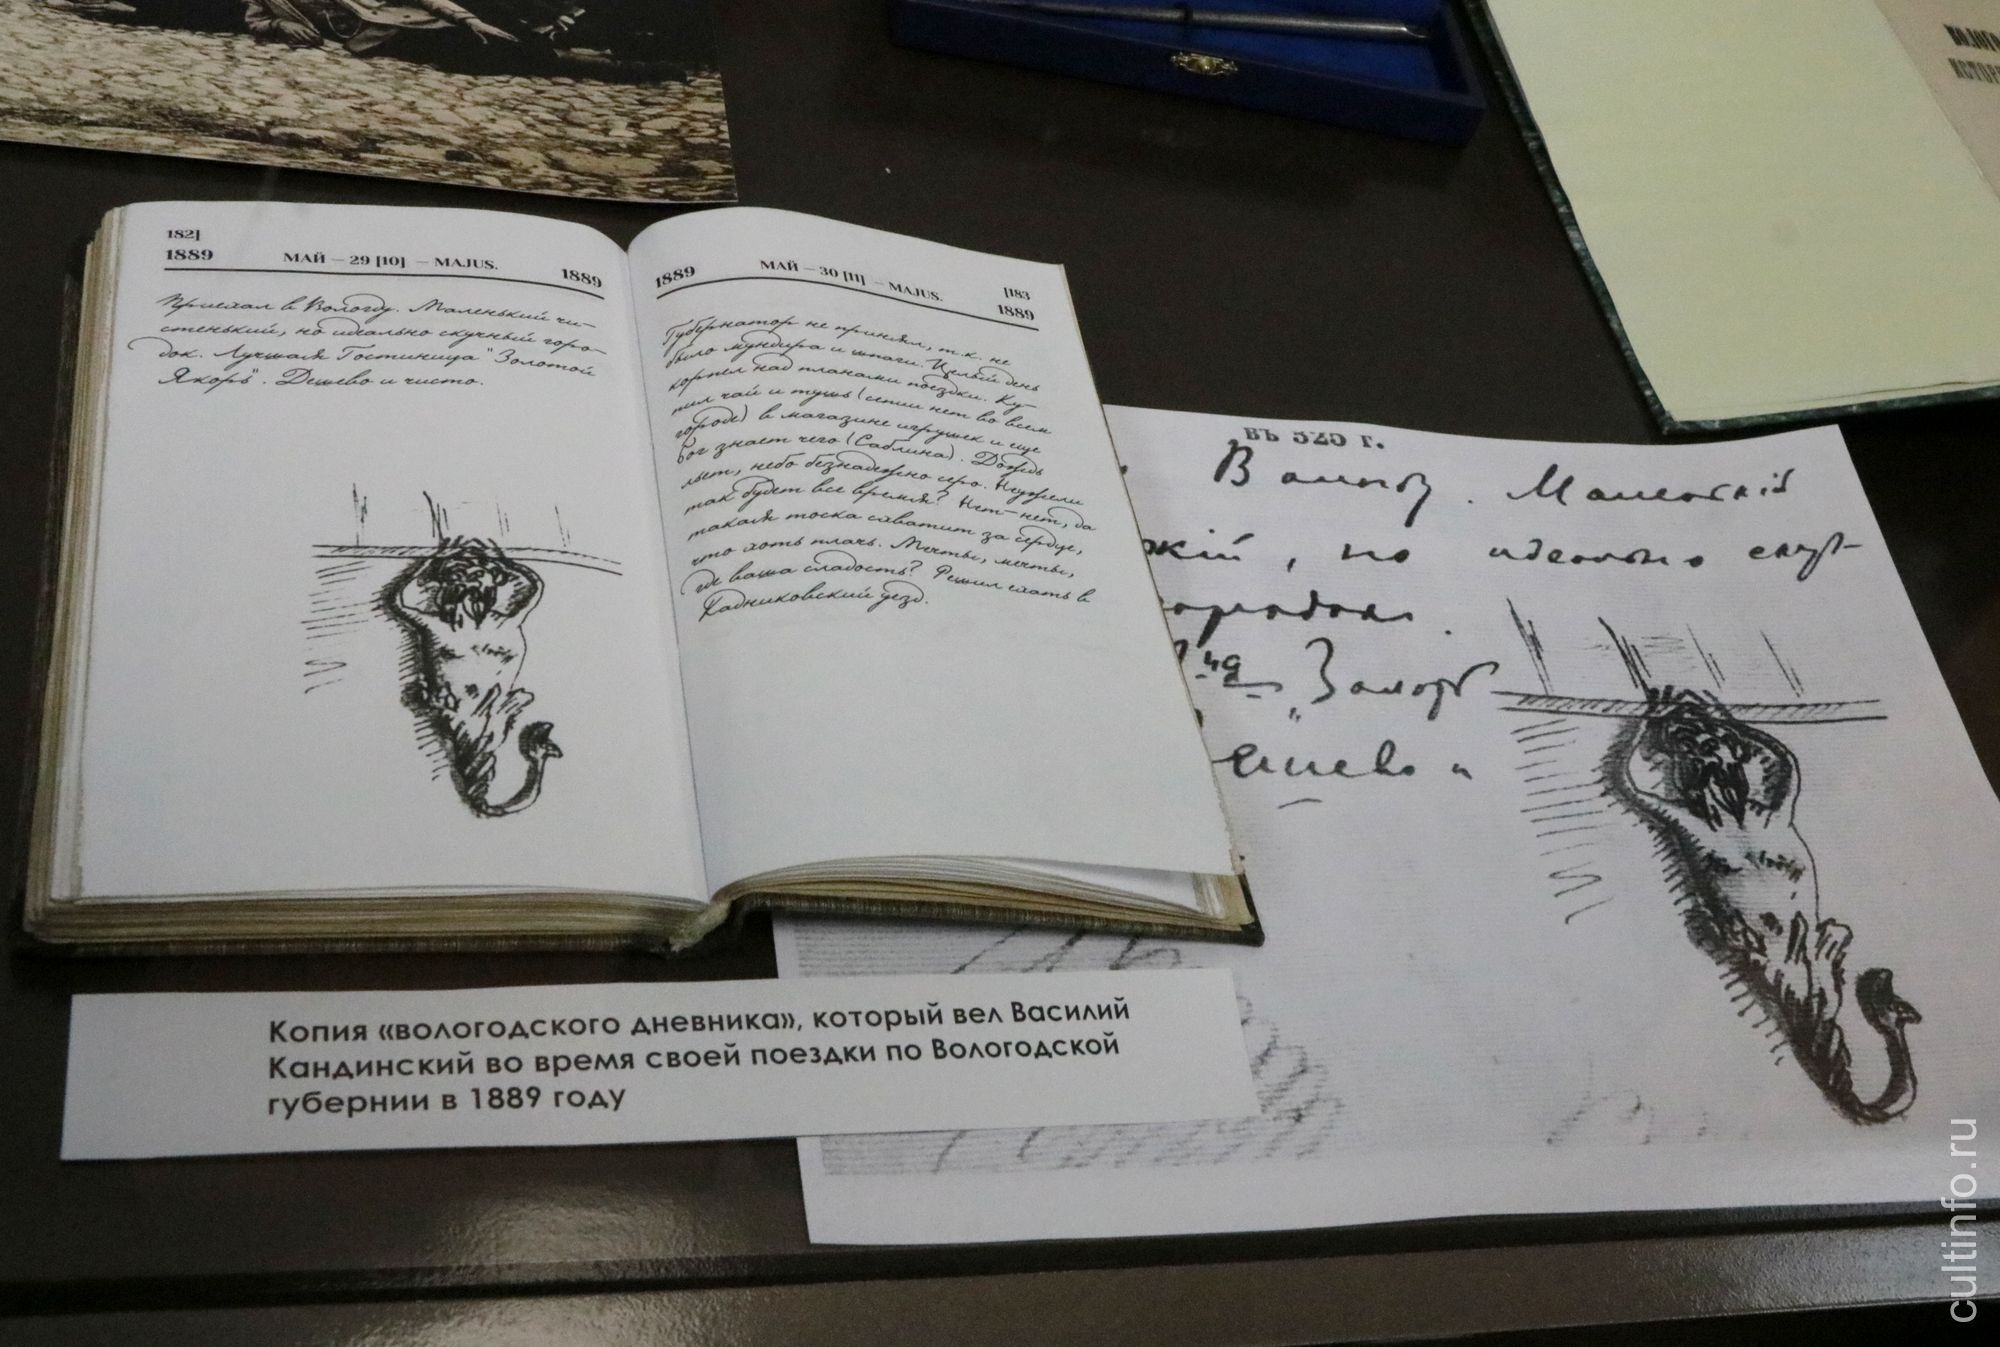 ВОЛОГ
ИСТОРИ
182]
1889
МАЙ — 29 [10] — MAJUS.
1889
Приехал в Вологду. Маленький чи-
стенький, но идеально скучный горо-
док. Лучшая Гостиница "Золотой
Якорь". Дешево и чисто.
1889
МАЙ — 30 [11] — MAJUS.
[183
1889
Губернатор не принял, т.к. не
было мундира и шпаги. Целый день
корпел над планами поездки. Ку-
пил чай и тушь (сепии нет во всем
городе) в магазине игрушек и еще
бог знает чего (Саблина). Дождь
льет, небо безнадежно серо. Неужели
так будет все время? Нет-нет, да
такая тоска схватит за сердце,
что хоть плачь. Мечты, мечты,
где ваша сладость? Решил ехать в
Кадниковский уезд.
въ 325 г.
Вологду. Маленькій
жкій, но идеально скуч-
городок.
Золот
ешево и
Копия «вологодского дневника», который вел Василий
Кандинский во время своей поездки по Вологодской
губернии в 1889 году
cultinfo.ru